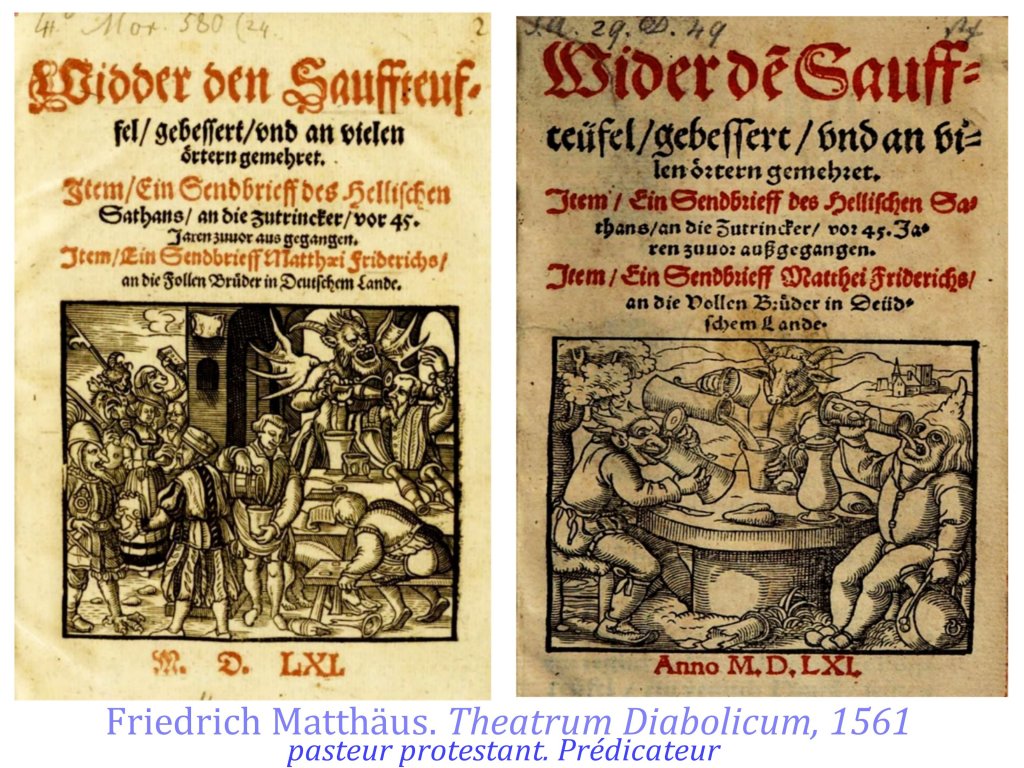 4° Mor. 580 (24
2
Widder den Sauffteuf-
fel/ gebessert/vnd an vielen
örtern gemehret.
Item/Ein Sendbrieff des Hellischen
Sathans/ an die Zutrincker/vor 45.
Jaren zuuor aus gegangen.
Item/Ein Sendbrieff Matthæi Friderichs/
an die Follen Brüder in Deutschem Lande.
M. D. LXI.
29. D. 49
Wider dē Sauff-
teüfel/gebessert/vnd an vi-
len örtern gemehret.
Item/ Ein Sendbrieff des Hellischen Sa-
thans/an die Zutrincker/ vor 45. Ja-
ren zuuor außgegangen.
Item/Ein Sendbrieff Matthei Friderichs/
an die Vollen Brüder in Deüd-
schem Lande.
Anno M. D. LXI.
Friedrich Matthäus. Theatrum Diabolicum, 1561
pasteur protestant. Prédicateur